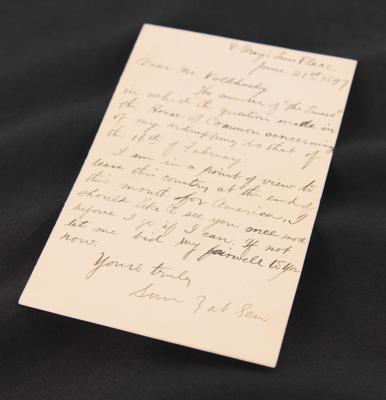 8 Gray's Inn Place
June 21st 1897
Dear Mr. Volkhovsky
The number of "the Times"
in which the question made in
the House of Common concerning
of my kidnapping is that of
the 16th of February.
I am in a point of view to
leave this country at the end of
this month for America, I
should like to see you once more
before I go if I can. If not
let me bid my fairwell to you
now.
Yours truly
Sun Yat Sen